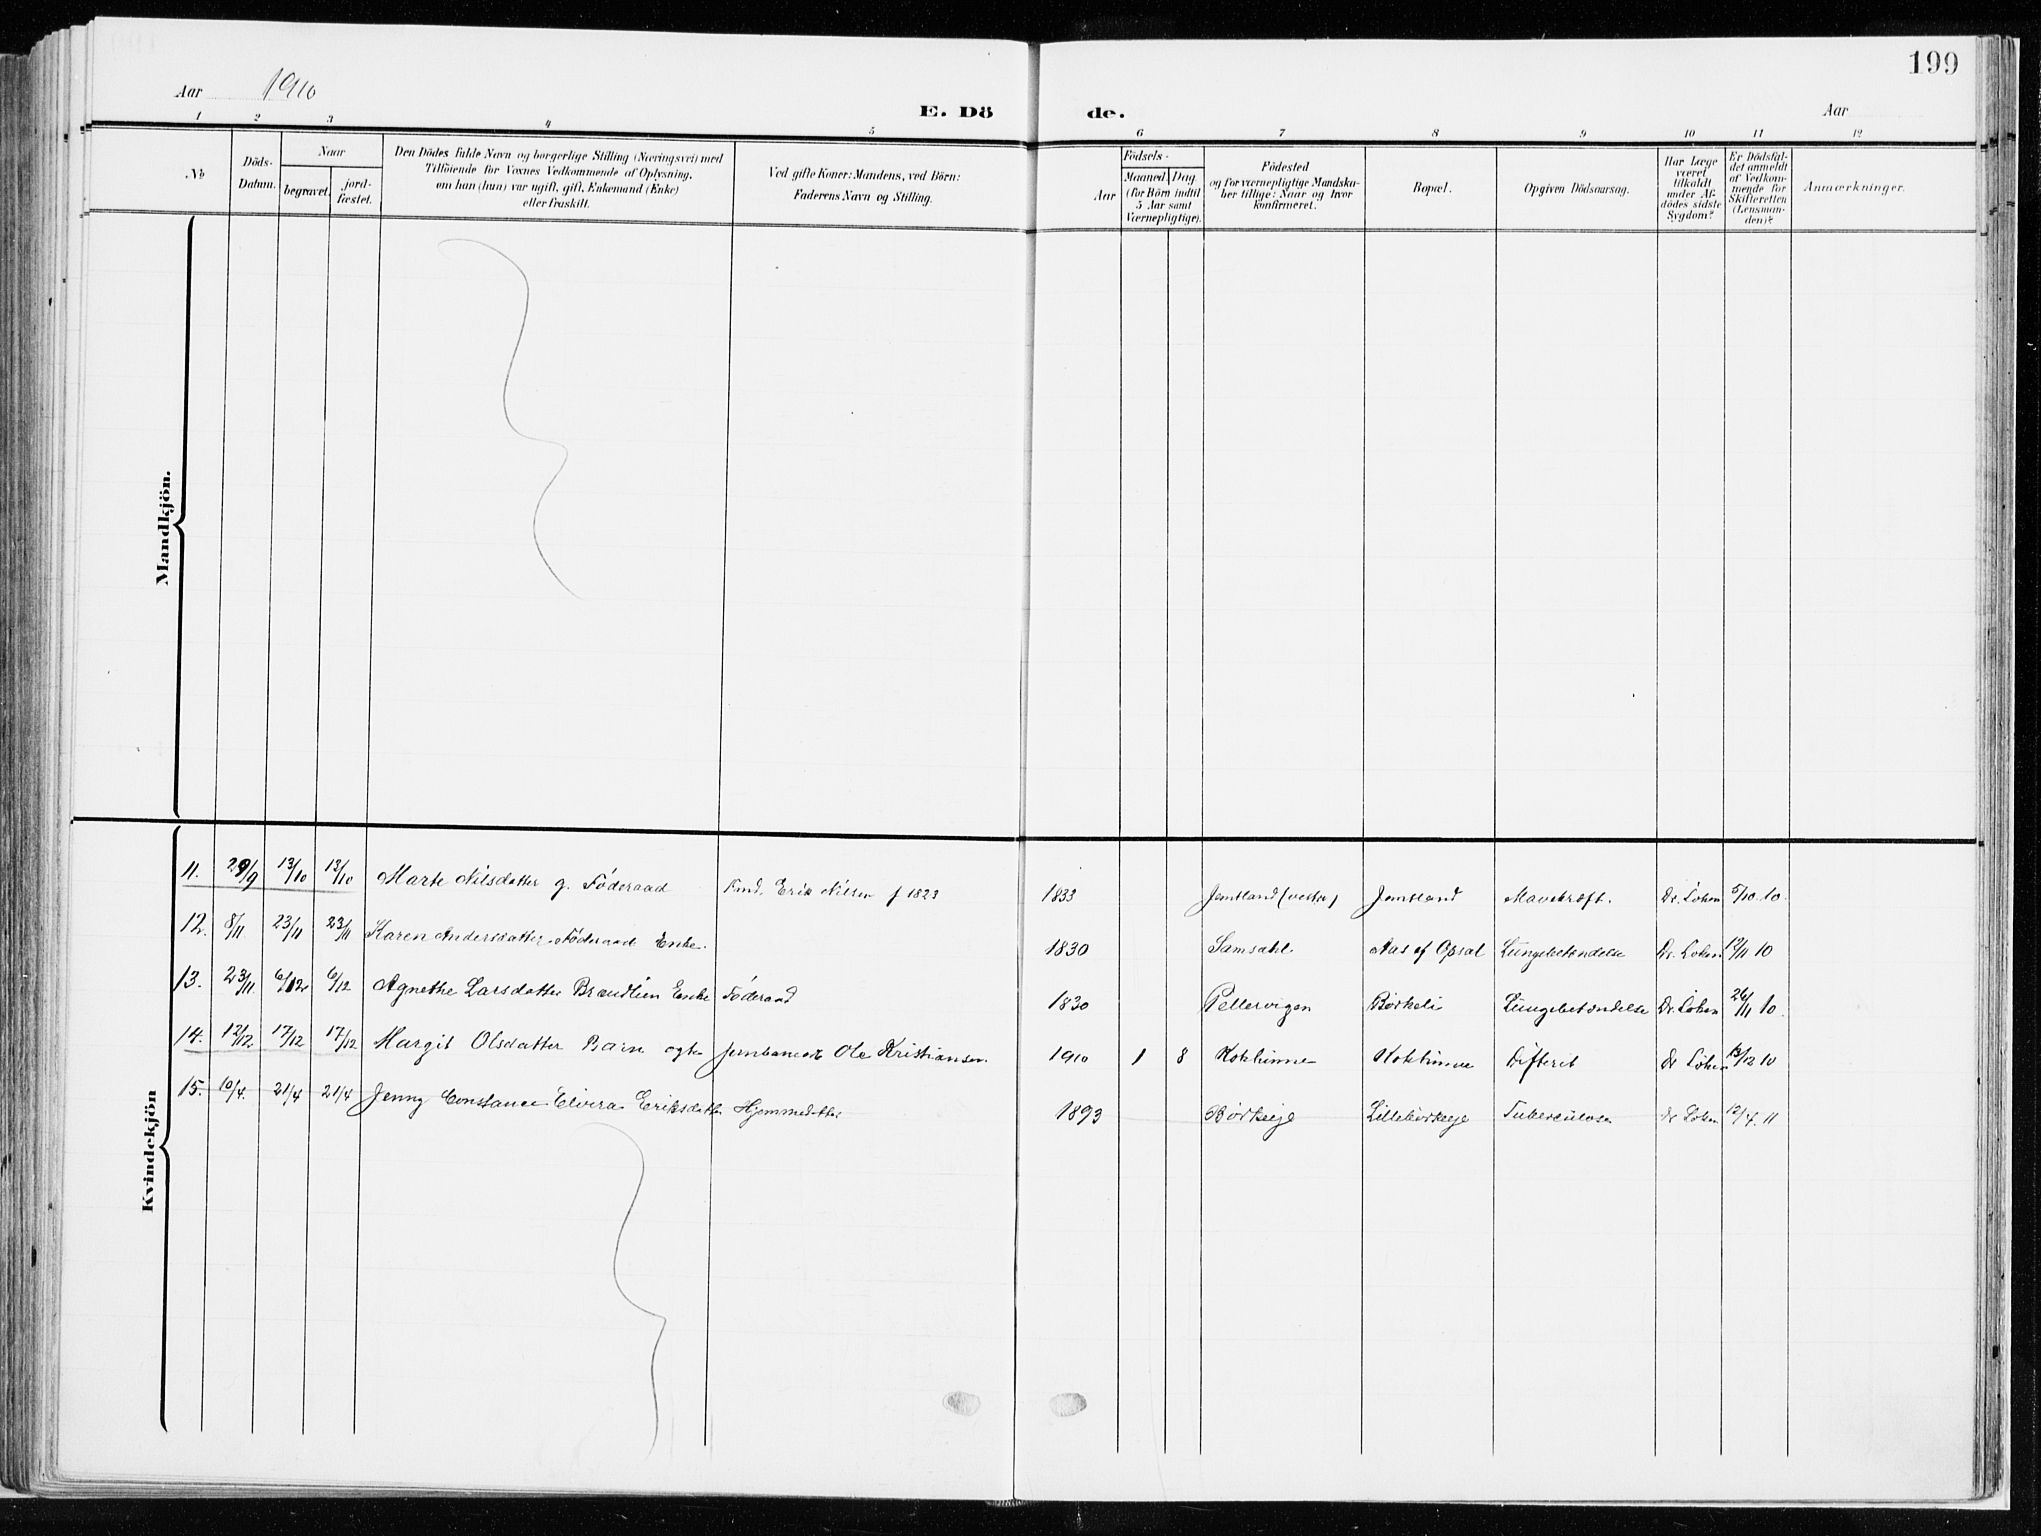 199
Aar 1910
E. Dö
de.
Aar
1 2 3 4 5 6 7 8 9 10 11 12
No
Döds-
Datum.
Naar
begravet.
jord-
fæstet.
Den Dödes fulde Navn og borgerlige Stilling (Næringsvei) med
Tilföiende for Voxnes Vedkommende af Oplysning,
om han (hun) var ugift, gift, Enkemand (Enke)
eller fraskilt.
Ved gifte Koner: Mandens, ved Börn:
Faderens Navn og Stilling.
Födsels-
Aar
Maaned
Dag
(for Börn indtil
5 Aar samt
Værnepligtige).
Födested
og for værnepligtige Mandska-
ber tillige: Naar og hvor
konfirmeret.
Bopæl.
Opgiven Dödsaarsag.
Har Læge
været
tilkaldt
under Af-
dödes sidste
Sygdom?
Er Dödsfal-
det anmeldt
af Vedkom-
mende for
Skifteretten
(Lensman-
den)?
Anmærkninger.
Mandkjön.
Kvindekjön
11. 29/9 13/10 13/10 Marte Nilsdatter g. Föderaad Fmd. Erik Nilsen f 1823 1833 Jemtland (vestre) Jemtland Mavekræft. Dr. Loken 5/10 10.
12. 8/11 23/11 23/11 Karen Andersdatter Föderaad Enke. 1830 Samsahl Aas af Opsal Lungebetændelse Dr. Loken 12/11 10
13. 23/11 6/12 6/12 Agnethe Larsdatter Brændlien Enke Föderaad 1830 Pellervigen Börkeli Lungebetændelse Dr. Loken 26/11 10.
14. 12/12 17/12 17/12 Margit Olsdatter Barn ogte Ole Kristiansen 1910 1 8 Koklimme Koklimme Difterit Dr Loken 13/12 10
15. 10/4. 21/4 21/4 Jenny Constance Elvira Eriksdatter Hjemmedatter 1893 Börkeje Lillebörkeje Tuberculose dr Loken 12/4. 11